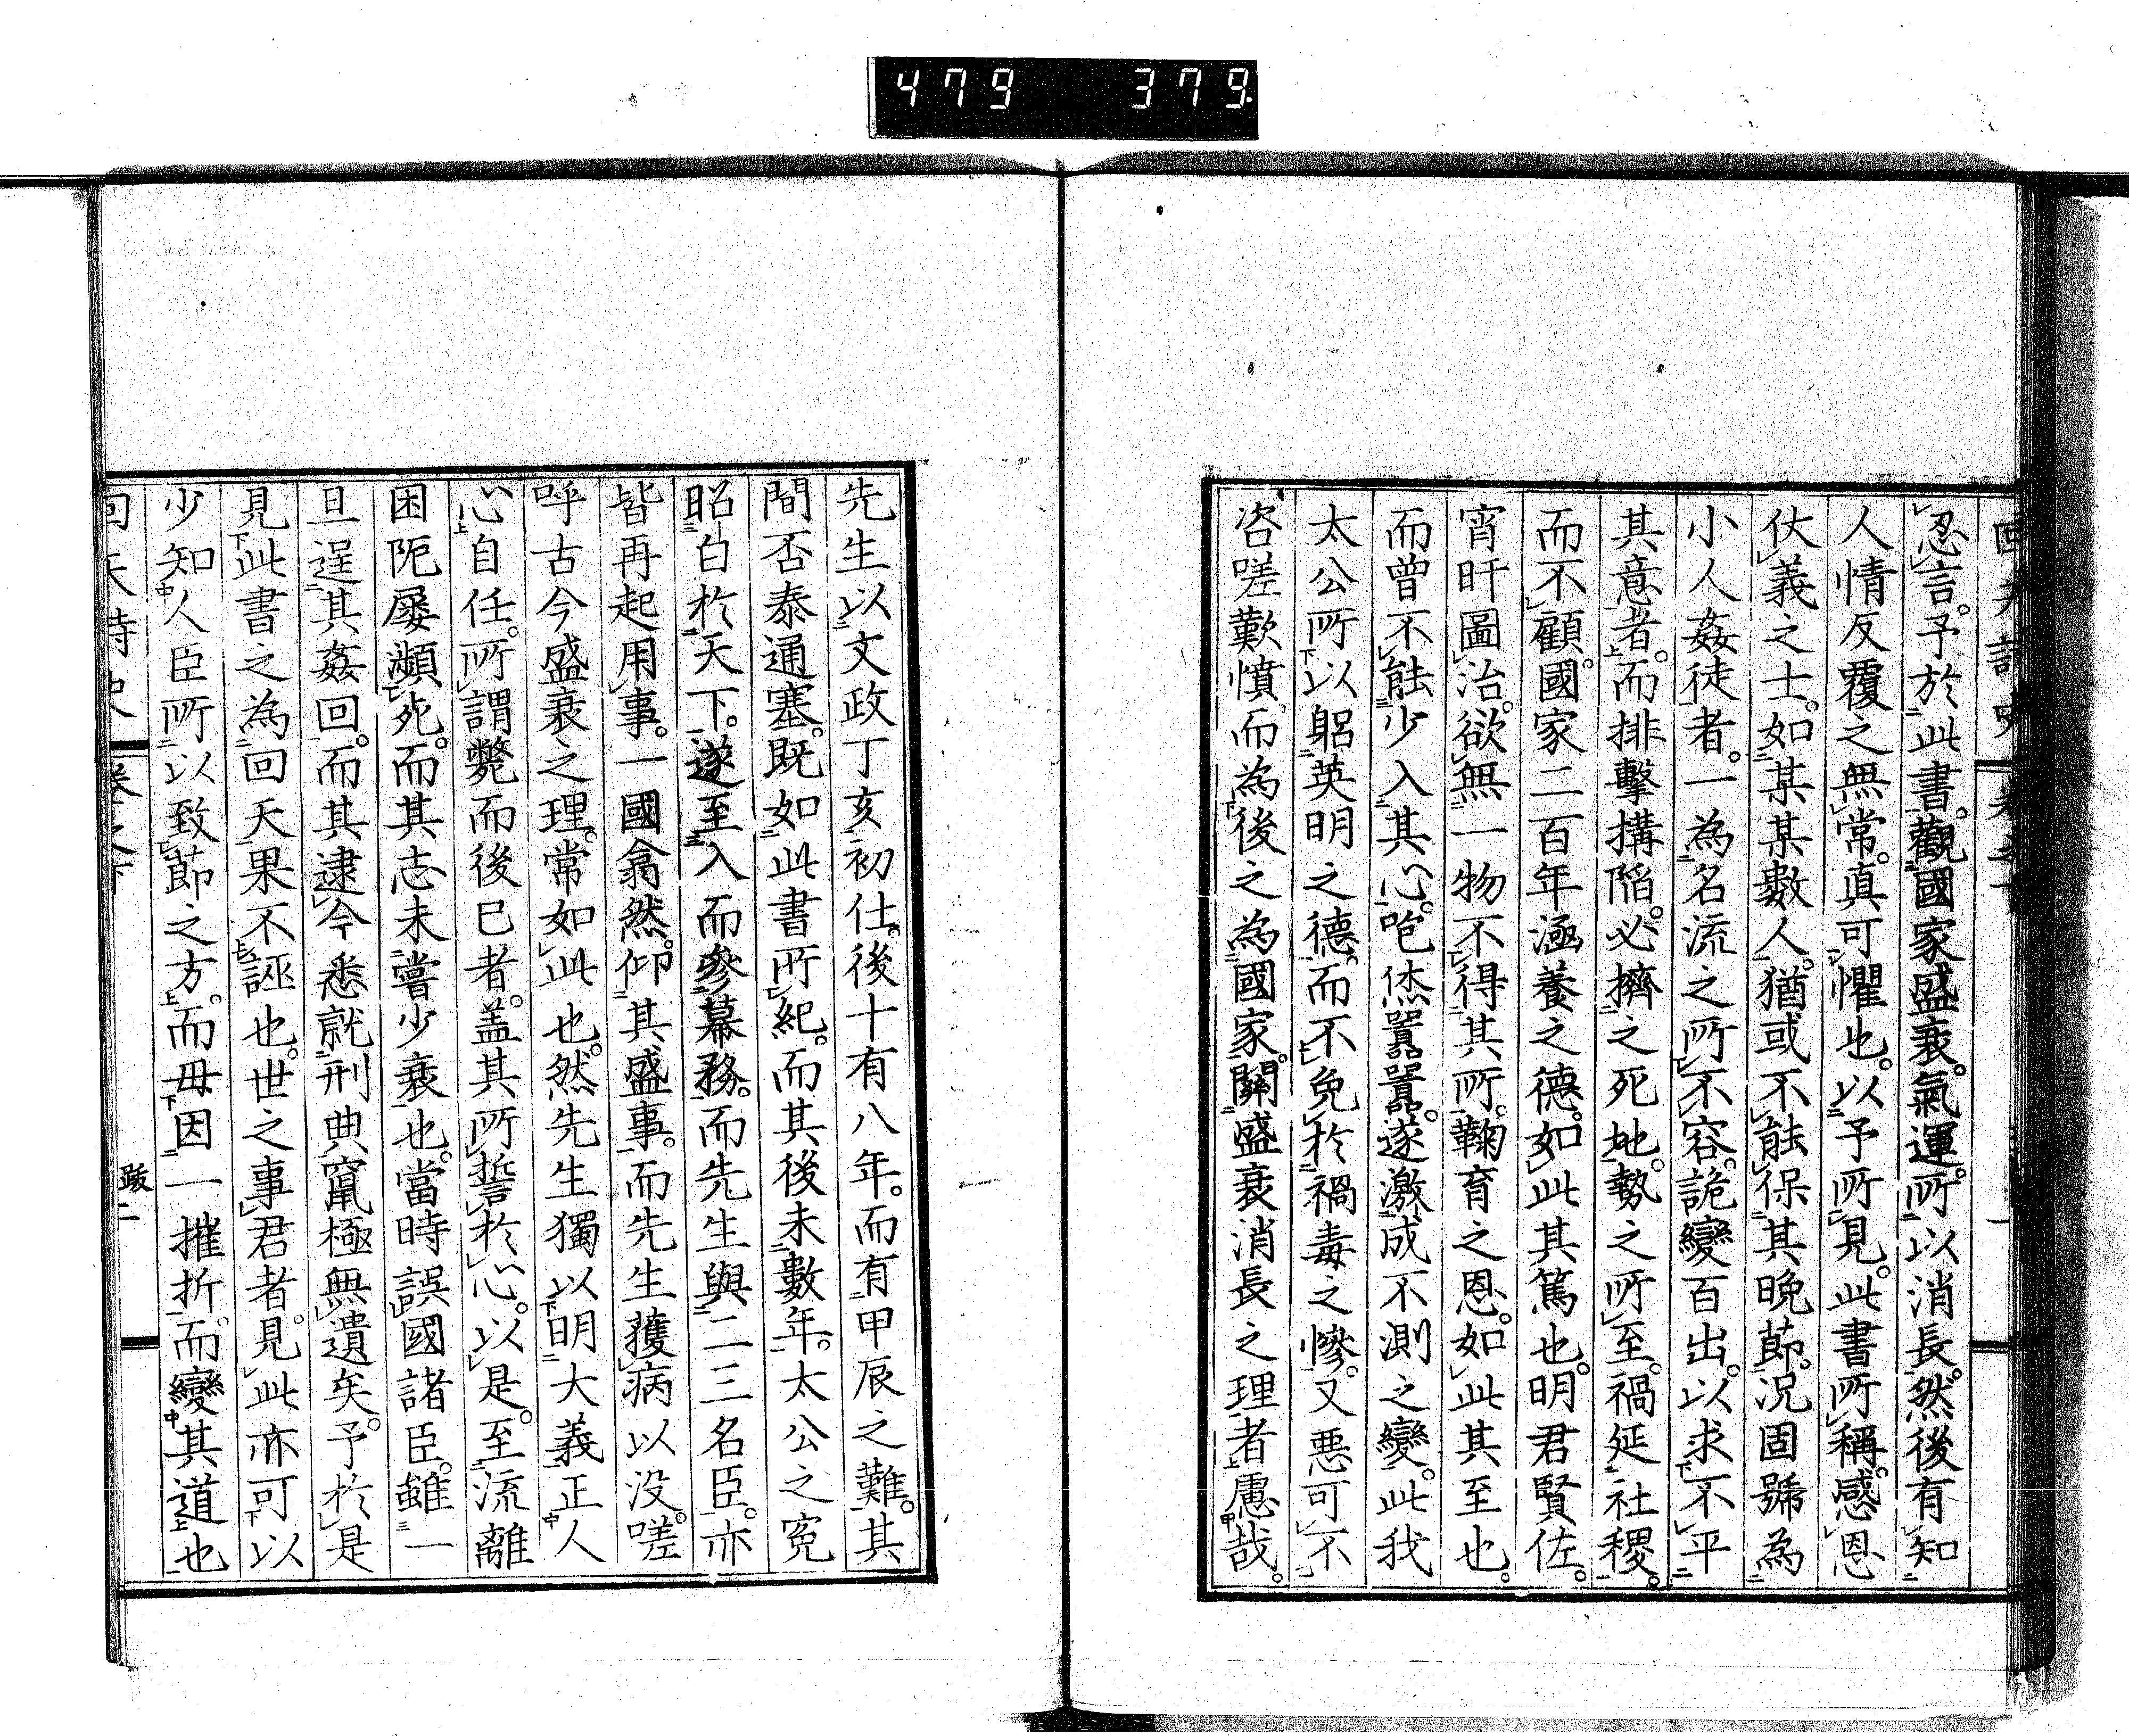 479 379
忍言。予於此書。觀國家盛衰。氣運所以消長。然後有知
人情反覆之無常。真可懼也。以予所見。此書所稱。感恩
仗義之士。如某某數人。猶或不能保其晩節。況固號為
小人姦徒者。一為名流之所不容。詭變百出。以求不平
其意者。而排擊搆陷。必擠之死地。勢之所至。禍延社稷。
而不顧。國家二百年涵養之德。如此其篤也。明君賢佐。
宵旰圖治。欲無一物不得其所。鞠育之恩。如此其至也。
而曾不能少入其心。咆烋囂囂。遂激成不測之變。此我
太公所以躬英明之德。而不免於禍毒之慘。又悪可不
咨嗟歎憤而為後之為國家。關盛衰消長之理者慮哉。
先生以文政丁亥初仕。後十有八年。而有甲辰之難。其
間否泰通塞。既如此書所紀。而其後未數年。太公之寃
昭白於天下。遂至入而參幕務。而先生與二三名臣。亦
皆再起用事。一國翕然。仰其盛事。而先生獲病以没。嗟
呼古今盛衰之理。常如此也。然先生獨以明大義正人
心自任。所謂斃而後已者。盖其所誓於心。以是。至流離
困阨屡瀕死。而其志未嘗少衰也。當時誤國諸臣。雖一
旦逞其姦回。而其逮今悉就刑典竄極無遺矣。予於是
見此書之為回天果不誣也。世之事君者。見此亦可以
少知人臣所以致節之方。而毋因一摧折。而變其道也
回天詩史
卷之下
跋二